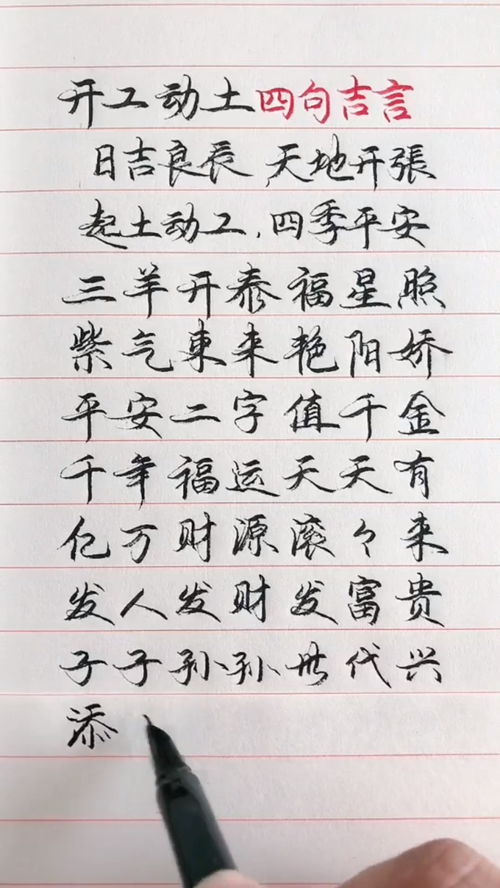 开工动土四句吉言
日吉良辰,天地开張
起土动工,四季平安
三羊开泰福星照
紫气東来艳阳娇
平安二字值千金
千年福运天天有
亿万财源滚々来
发人发财发富贵
子子孙孙世代兴
添